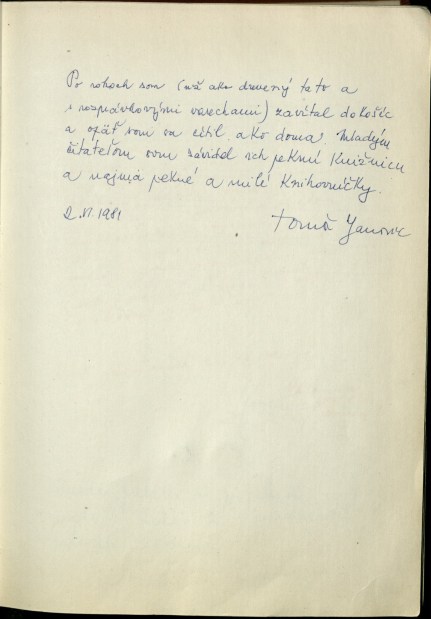 Po rokoch som (už ako drevený tato a
s rozprávkovými varechami) zavítal do Košíc
a opäť som sa cítil ako doma. Mladým
čitateľom som závidel ich peknú Knižnicu
a najmä pekné a milé Knihovníčky.
2. VI. 1981
Tomáš Janovic